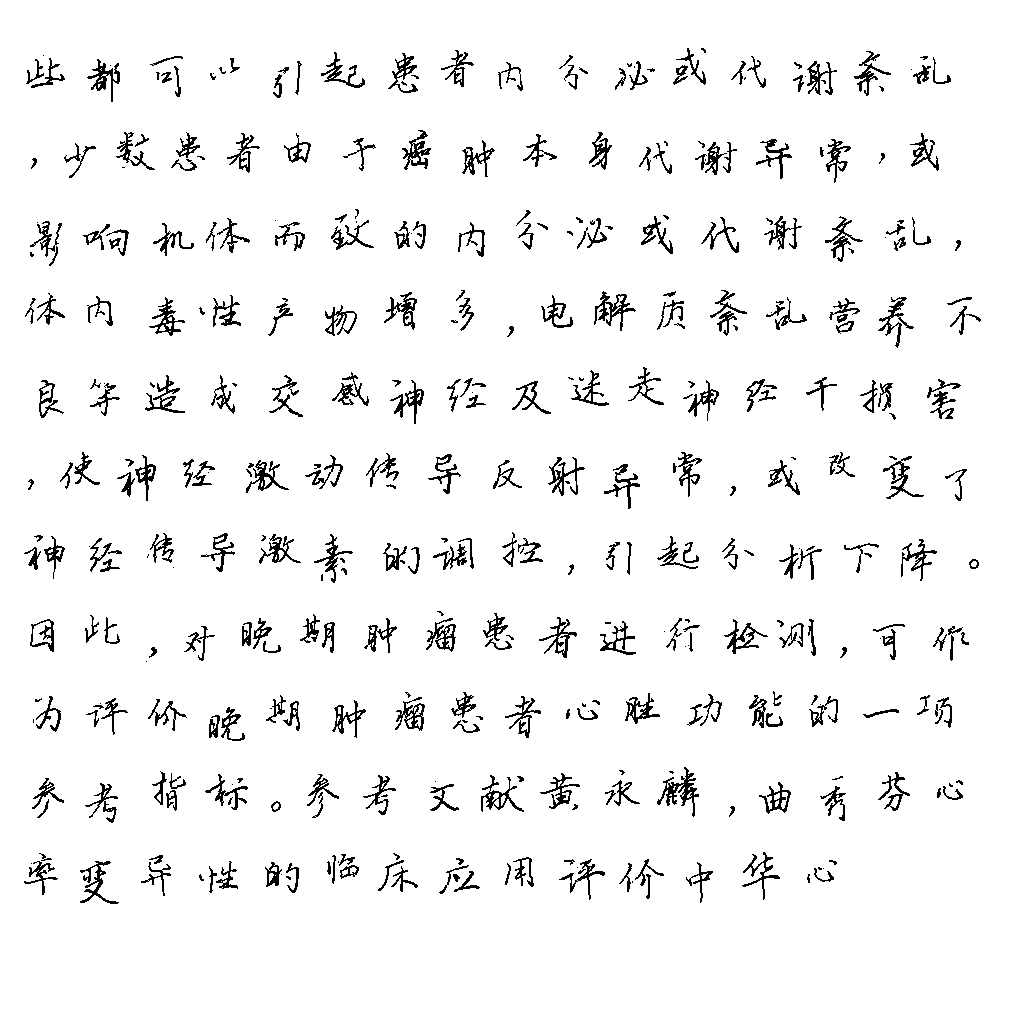 些都可以引起患者内分泌或代谢紊乱
，少数患者由于癌肿本身代谢异常，或
影响机体而致的内分泌或代谢紊乱，
体内毒性产物增多，电解质紊乱营养不
良等造成交感神经及迷走神经干损害
，使神经激动传导反射异常，或改变了
神经传导激素的调控，引起分析下降。
因此，对晚期肿瘤患者进行检测，可作
为评价晚期肿瘤患者心胜功能的一项
参考指标。参考文献黄永麟，曲秀芬心
率变异性的临床应用评价中华心